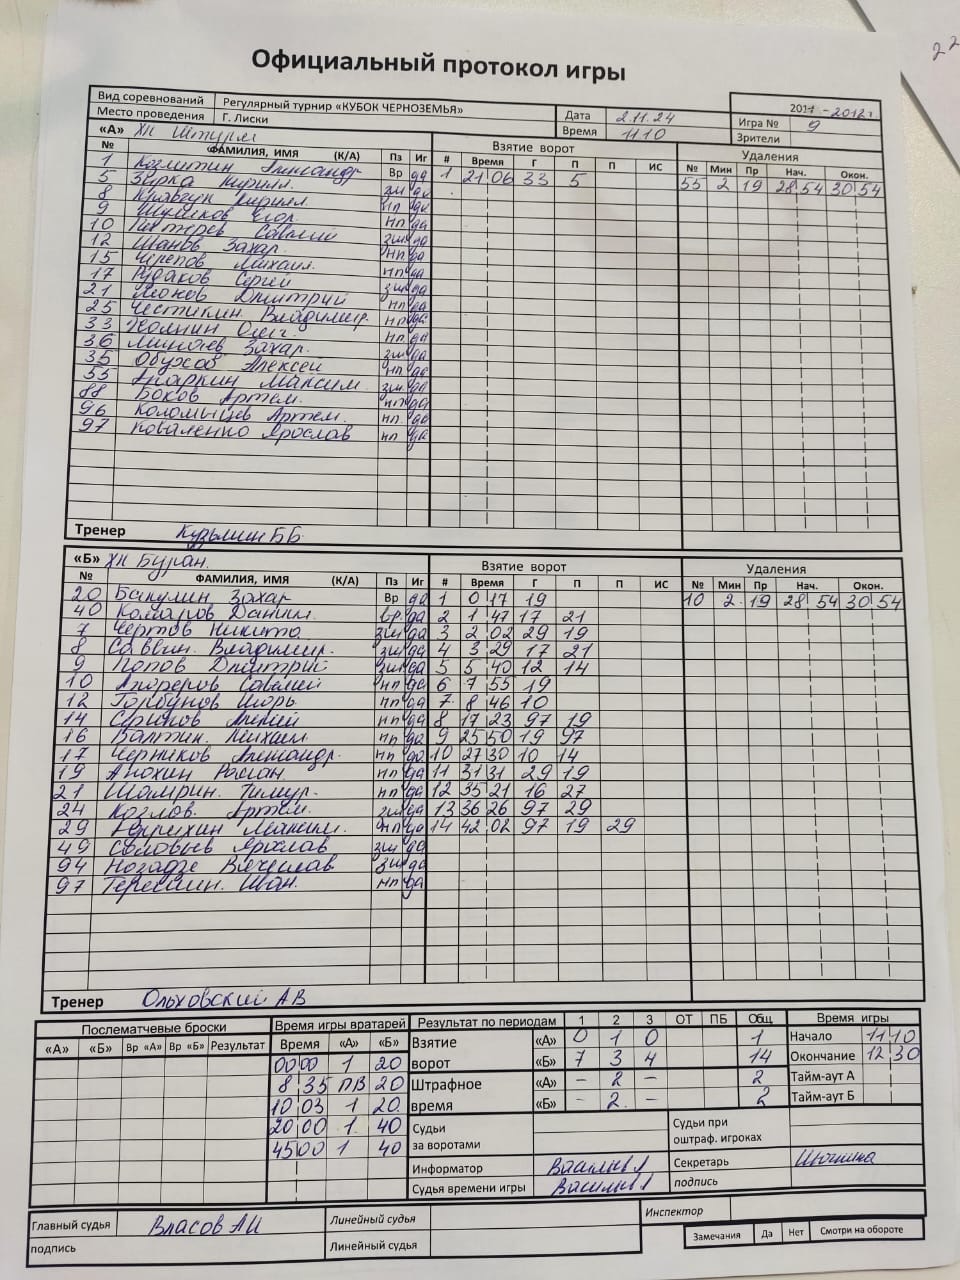 22
Официальный протокол игры
Вид соревнований Регулярный турнир «КУБОК ЧЕРНОЗЕМЬЯ» 2011 - 2012г
Место проведения Г. Лиски Дата 2.11.24 Игра № 9
Время 11.10 Зрители
«А» ХК Штурм Взятие ворот Удаления
№ ФАМИЛИЯ, ИМЯ (К/А) Пз Иг # Время Г П П ИС № Мин Пр Нач. Окон.
1 Александр Вр да 1 21 06 33 5 55 2 19 28 54 30 54
5 Зирка Кирилл зщ да
8 Кравчук Кирилл нп да
9 Егор нп да
10 Савелий зщ да
12 Шанов Захар нп да
15 Черепов Михаил нп да
17 Рудаков Сергей зщ да
21 Леонов Дмитрий нп да
25 Честикин Владимир нп да
33 Олег нп да
36 Захар зщ да
35 Обухов Алексей нп да
55 Максим зщ да
88 Боков Артем нп да
96 Коломыцев Артем нп да
97 Коваленко Ярослав нп да
Тренер Кузьмин Б.Б.
«Б» ХК Буран Взятие ворот Удаления
№ ФАМИЛИЯ, ИМЯ (К/А) Пз Иг # Время Г П П ИС № Мин Пр Нач. Окон.
20 Бакулин Захар Вр да 1 0 17 19 10 2 19 28 54 30 54
40 Комаров Даниил вр да 2 1 47 17 21
7 Чертов Никита зщ да 3 2 02 29 19
8 Саввин Владимир зщ да 4 3 29 17 21
9 Попов Дмитрий зщ да 5 5 40 12 14
10 Савелий нп да 6 7 55 19
12 Горбунов Игорь нп да 7 8 46 10
14 Алексей нп да 8 17 23 97 19
16 Михаил нп да 9 25 50 19 97
17 Черников Александр нп да 10 27 30 10 14
19 Анохин Руслан нп да 11 31 31 29 19
21 Шамрин Тимур нп да 12 35 21 16 27
24 Козлов Артем зщ да 13 36 26 97 29
29 Максим нп да 14 42 02 97 19 29
49 Соловьев Ярослав зщ да
94 Нозадзе Вячеслав зщ да
97 Терешин Иван нп да
Тренер Ольховский АВ
Послематчевые броски Время игры вратарей Результат по периодам 1 2 3 ОТ ПБ Общ Время игры
«А» «Б» Вр «А» Вр «Б» Результат Время «А» «Б» Взятие ворот «А» 0 1 0 1 Начало 11 10
00 00 1 20 «Б» 7 3 4 14 Окончание 12 30
8 35 ПВ 20 Штрафное время «А» - 2 - 2 Тайм-аут А
10 03 1 20 «Б» - 2 - 2 Тайм-аут Б
20 00 1 40 Судьи за воротами Судьи при оштраф. игроках
45 00 1 40
Информатор Васильев Секретарь
Судья времени игры Васильев подпись
Главный судья Власов АИ Линейный судья Инспектор
подпись Линейный судья Замечания Да Нет Смотри на обороте